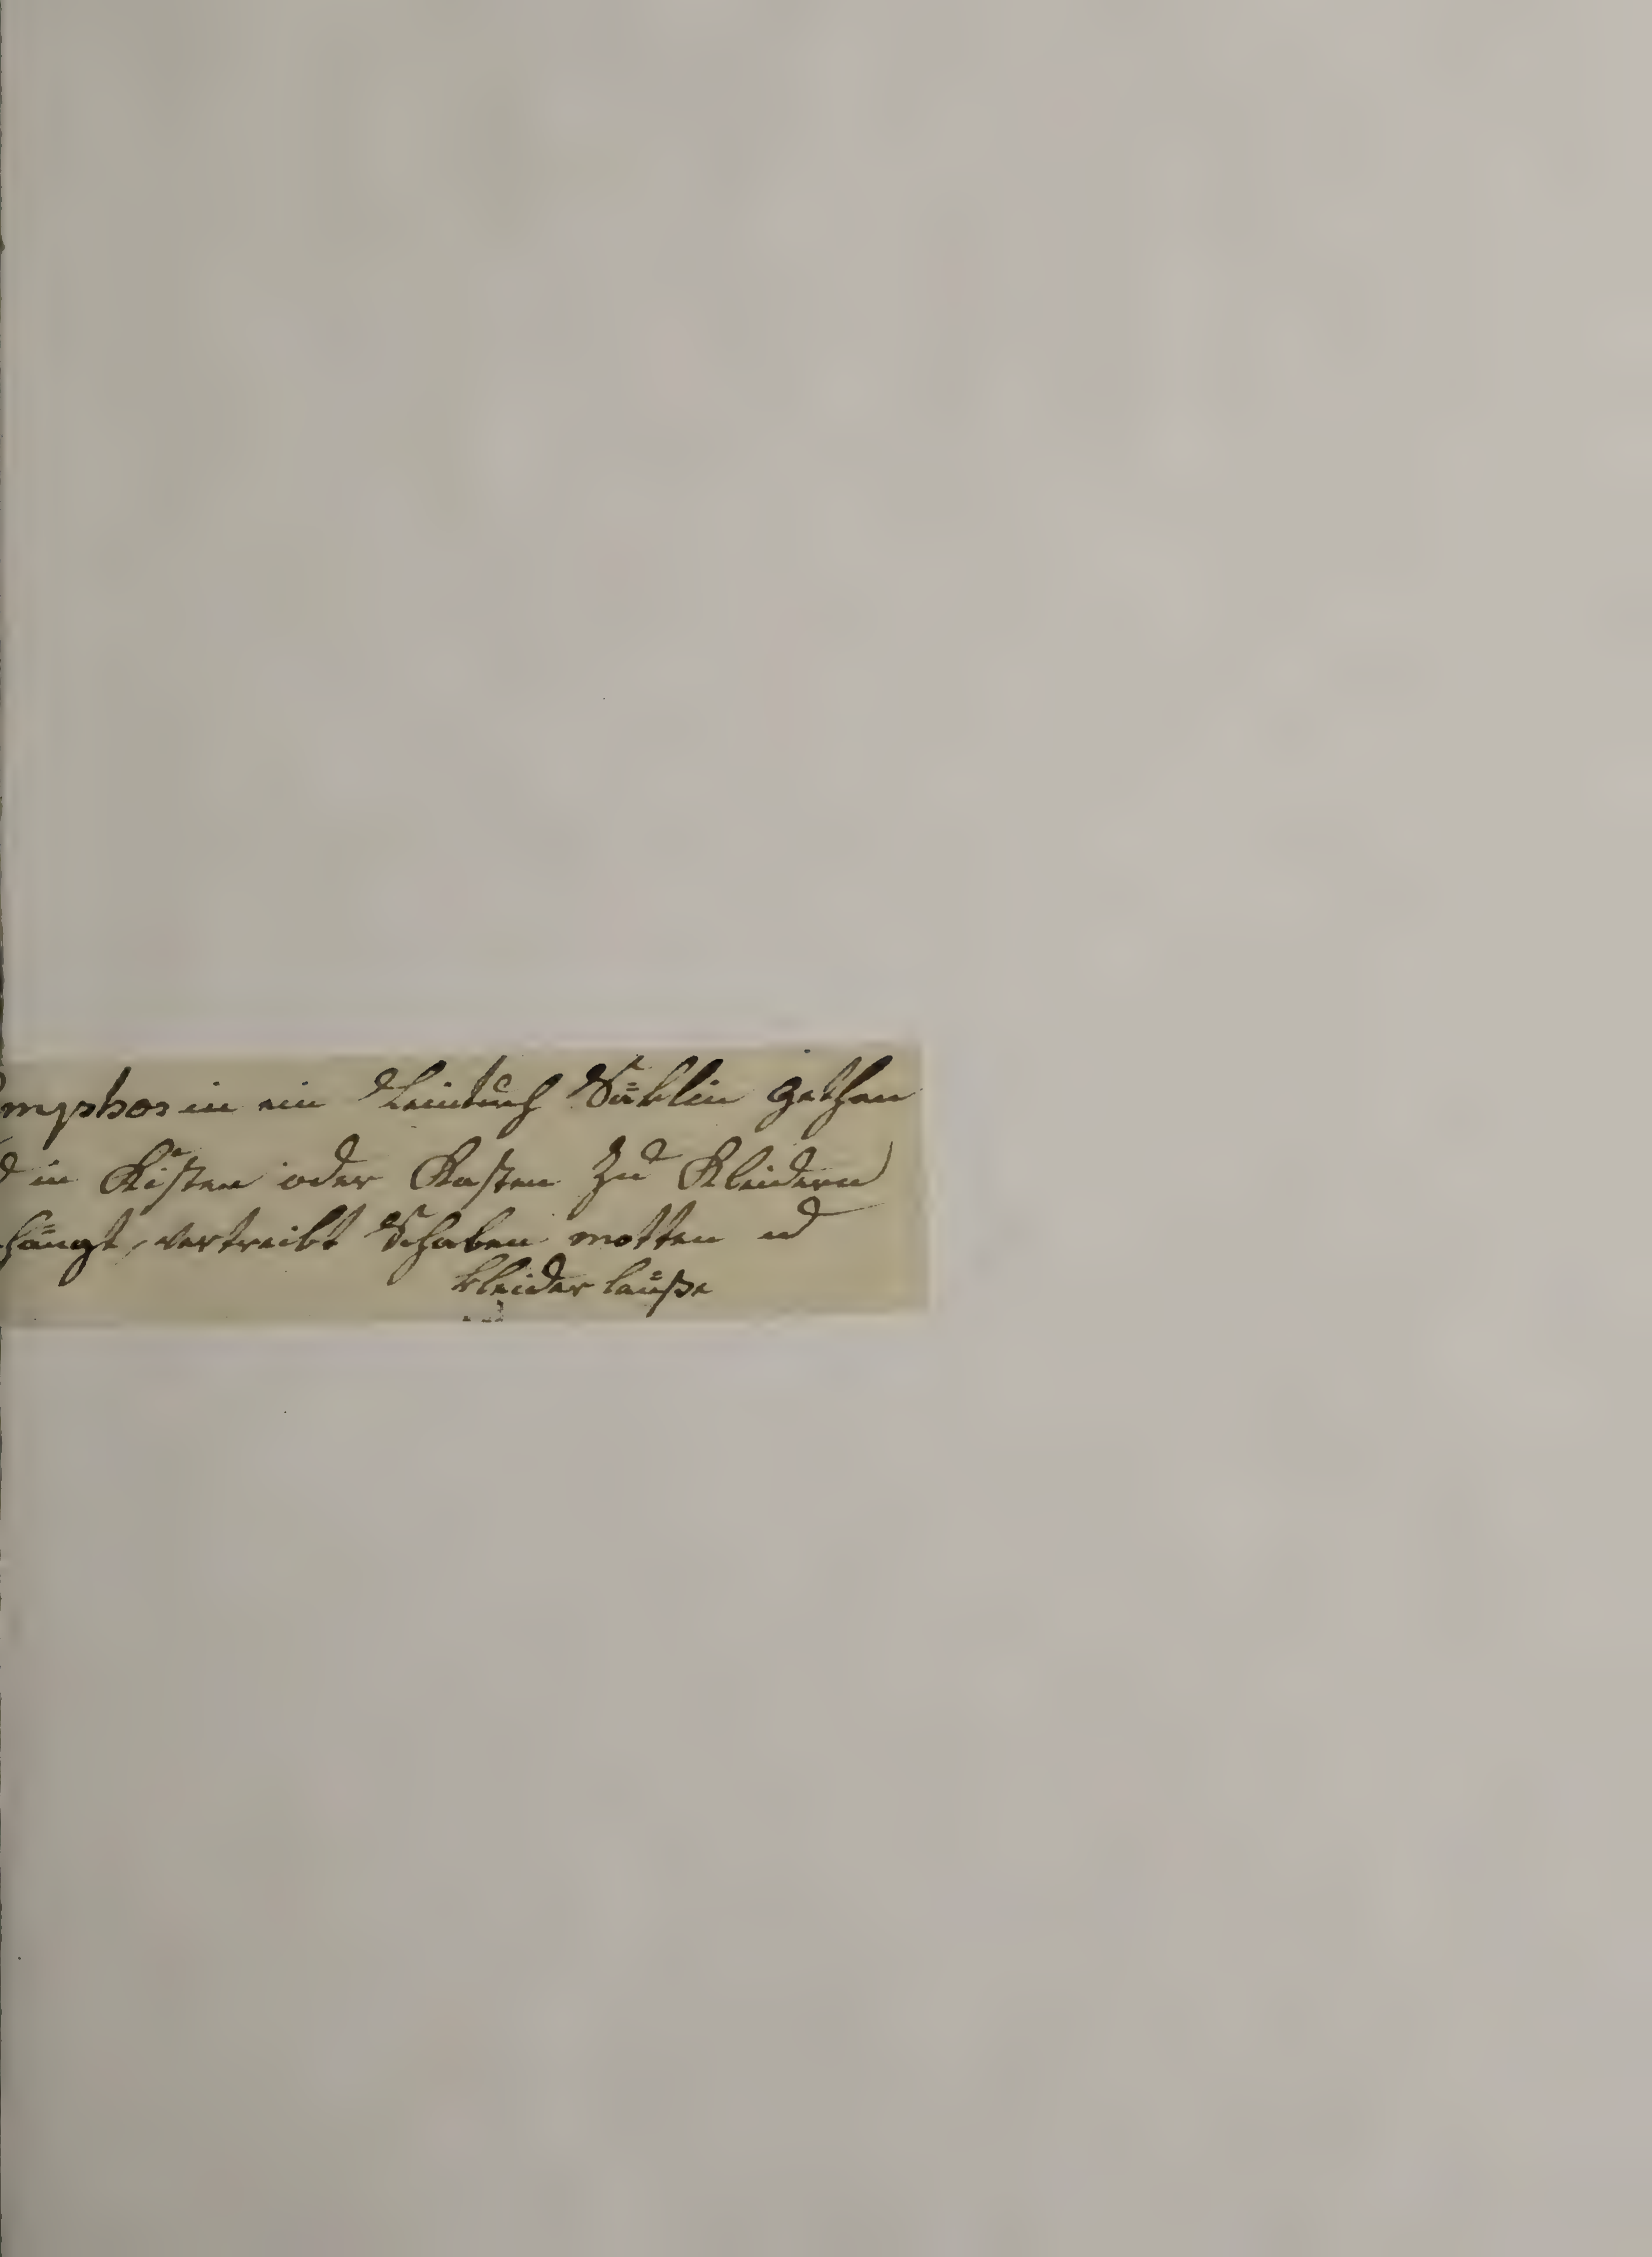 mphor in ein Leintuch Säklin gethan
d in Kisten oder Kasten zu Kleidern
hängt, vertreibt Schaben motten ud
kleider läuße